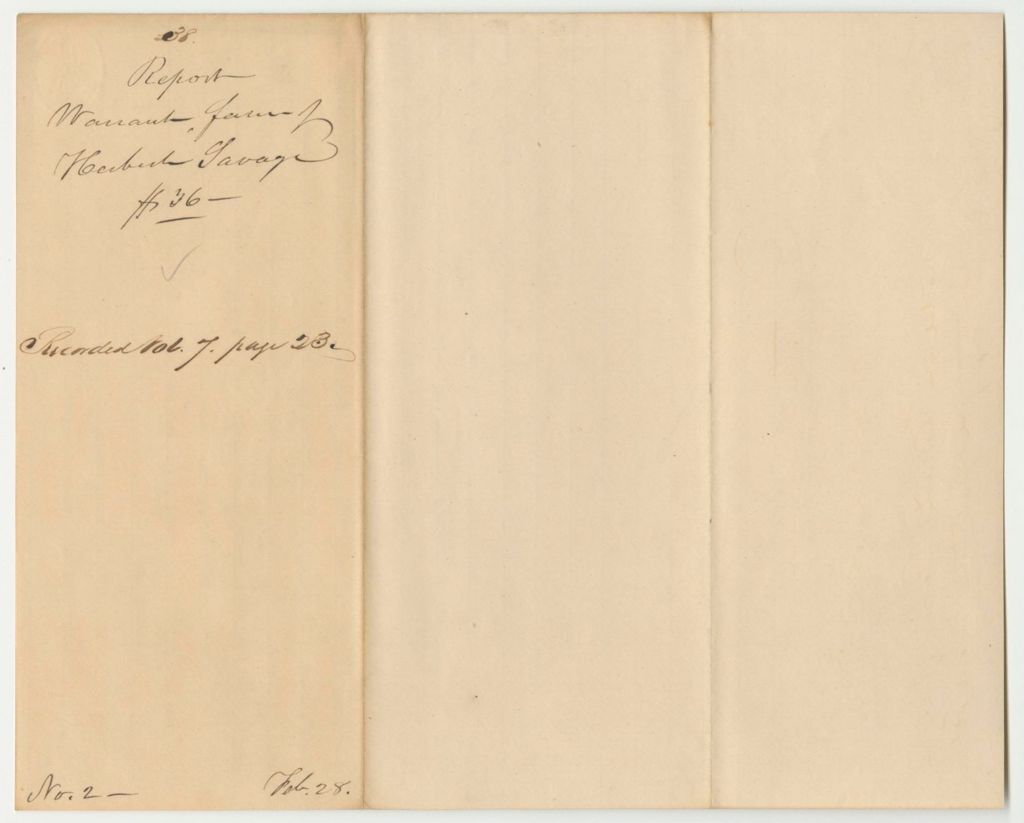 38.
Report
Warrant, favor of
Herbert Savage
$36—
Recorded Vol. 7. page 23.
No. 2— Feb. 28.